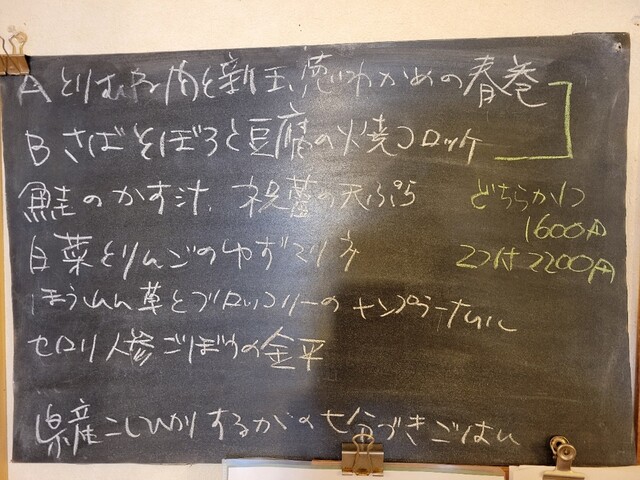 A とりむね肉と新玉葱、わかめの春巻
B さばそぼろと豆腐の火焼コロッケ
鮭のかす汁、祝蕾の天ぷら
どちらか1つ
1600円
2つ付 2200円
白菜とりんごのゆずマリネ
ほうれん草とブロッコリーのナンプラーナムル
セロリ人参ごぼうの金平
県産こしひかり するがの七分づきごはん